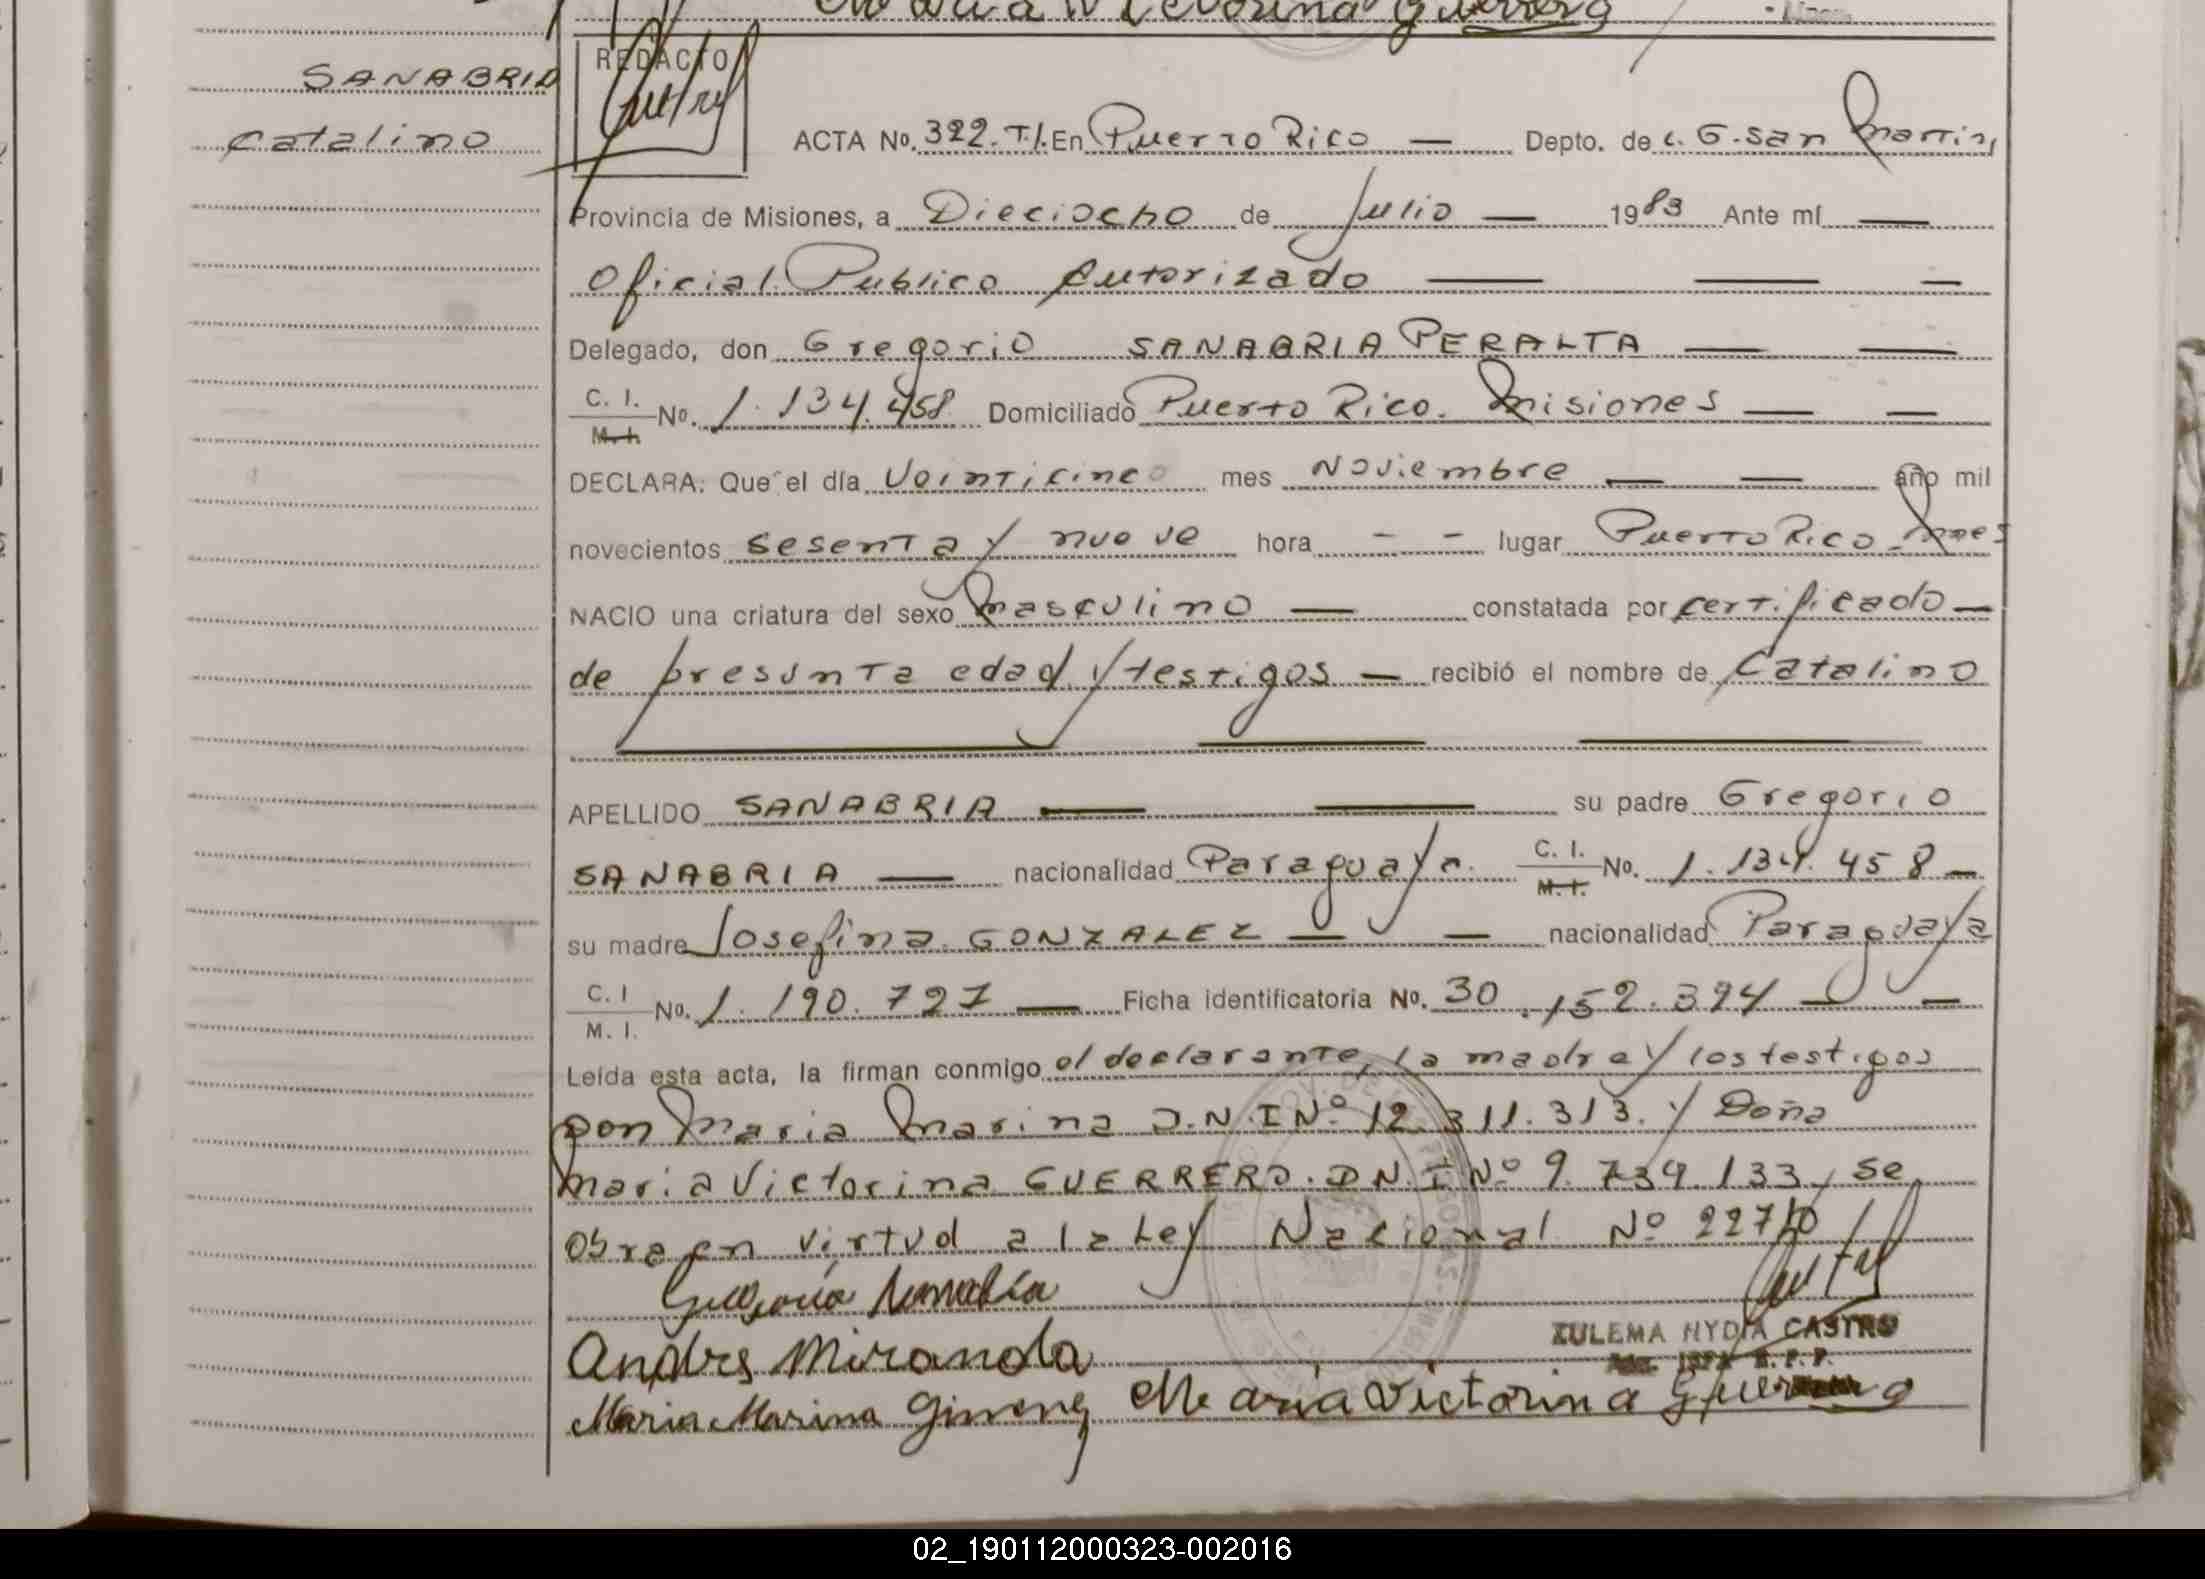 Maria Victorina Guerrero
SANABRIA
Catalino
REDACTO
ACTA No. 322. T. I. En Puerto Rico — Depto. de L. G. San Martin,
Provincia de Misiones, a Dieciocho de Julio — 1983 Ante mí —
Oficial Publico Autorizado — — —
Delegado, don Gregorio SANABRIA PERALTA — —
C. I. / M. I. No. 1.134.458 Domiciliado Puerto Rico. Misiones — —
DECLARA: Que el día Veinticinco mes Noviembre — — año mil
novecientos sesenta y nueve hora - - lugar Puerto Rico. Mnes
NACIO una criatura del sexo masculino — constatada por certificado —
de presunta edad y testigos — recibió el nombre de Catalino
APELLIDO SANABRIA — — su padre Gregorio
SANABRIA — nacionalidad Paraguaya. C. I. / M. I. No. 1.134.458 —
su madre Josefina GONZALEZ — — nacionalidad Paraguaya
C. I / M. I. No. 1.190.727 — Ficha identificatoria No. 30.152.394 — —
Leída esta acta, la firman conmigo el declarante, la madre y los testigos
Don Maria Marina D.N.I Nº 12.311.313. y Doña
Maria Victorina GUERRERO. D.N.I Nº 9.739.133, se
obra en virtud a la Ley Nacional Nº 22710
Gregorio Sanabria
ZULEMA NYDIA CASTRO
Andres Miranda
Maria Marina Gimenez Maria Victorina Guerrero
02_190112000323-002016